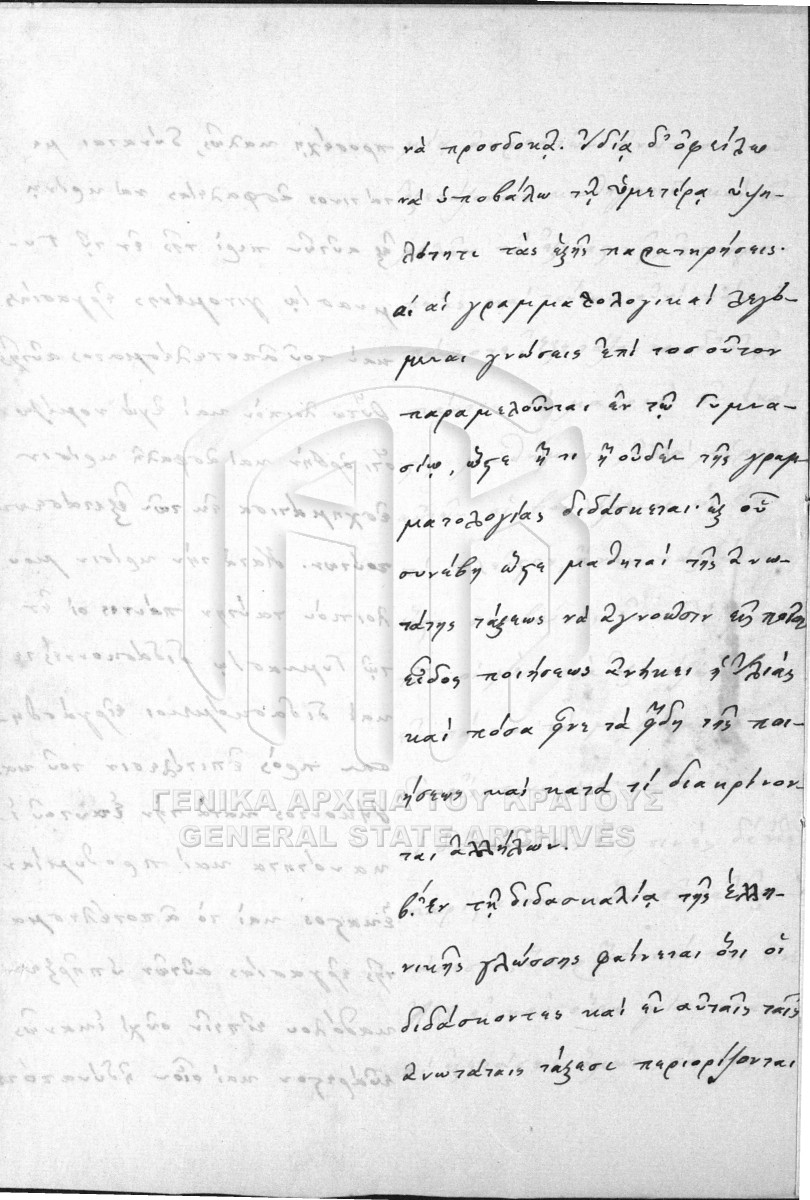 νὰ προσδοκᾷ. Ἰδίᾳ δ' ὀφείλω
νὰ ὑποβάλω τῇ ὑμετέρᾳ ὑψη-
λότητι τὰς ἑξῆς παρατηρήσεις.
αί αἱ γραμματολογικαὶ λεγό-
μεναι γνώσεις ἐπὶ τοσοῦτον
παραμελοῦνται ἐν τῷ Γυμνα-
σίῳ, ὥστε ἤ τι ἢ οὐδὲν τῆς γραμ-
ματολογίας διδάσκεται· ἐξ οὗ
συνέβη ὥστε μαθηταὶ τῆς ἀνω-
τάτης τάξεως νὰ ἀγνοῶσιν εἰς ποῖον
εἶδος ποιήσεως ἀνήκει ἡ Ἰλιὰς
καὶ πόσα εἶνε τὰ εἴδη τῆς ποι-
ήσεως καὶ κατὰ τί διακρίνον-
ται ἀλλήλων.
β'. Ἐν τῇ διδασκαλίᾳ τῆς ἑλλη-
νικῆς γλώσσης φαίνεται ὅτι οἱ
διδάσκοντες καὶ ἐν αὐταῖς ταῖς
ἀνωτάταις τάξεσι περιορίζονται
ΓΕΝΙΚΑ ΑΡΧΕΙΑ ΤΟΥ ΚΡΑΤΟΥΣ
GENERAL STATE ARCHIVES